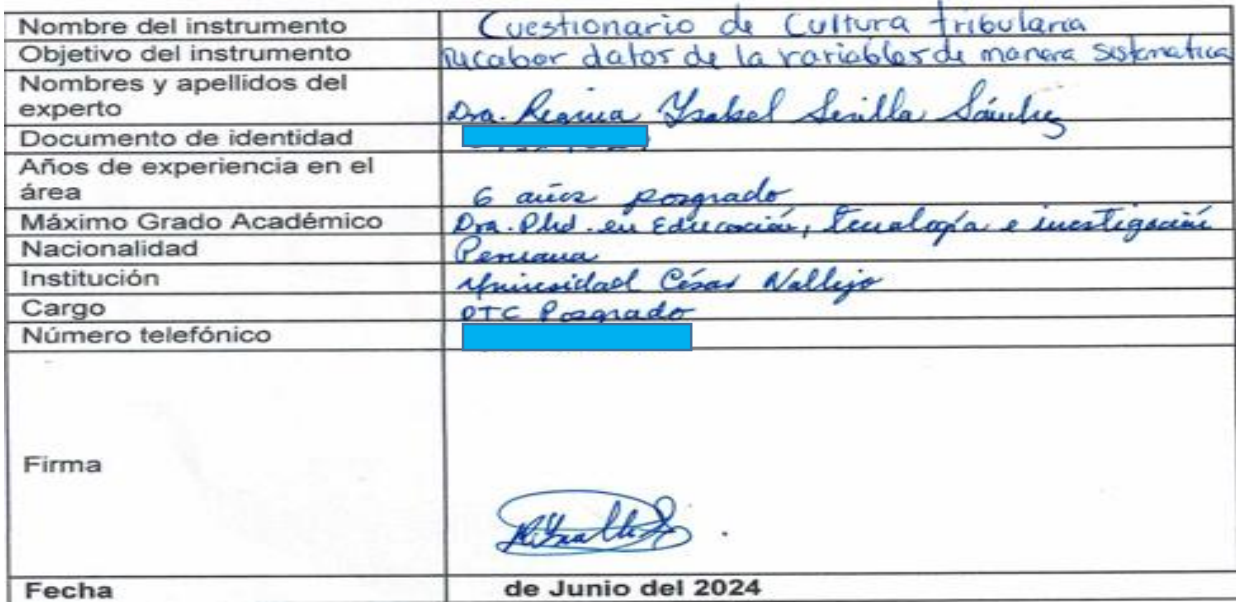 Nombre del instrumento Cuestionario de Cultura tributaria
Objetivo del instrumento recabar datos de la variables de manera sistematica
Nombres y apellidos del
experto Dra. Regina Ysabel Sevilla Sánchez
Documento de identidad
Años de experiencia en el
área 6 años posgrado
Máximo Grado Académico Dra. Phd. en Educación, Tecnología e investigación
Nacionalidad Peruana
Institución Universidad César Vallejo
Cargo DTC Posgrado
Número telefónico
Firma
Fecha de Junio del 2024